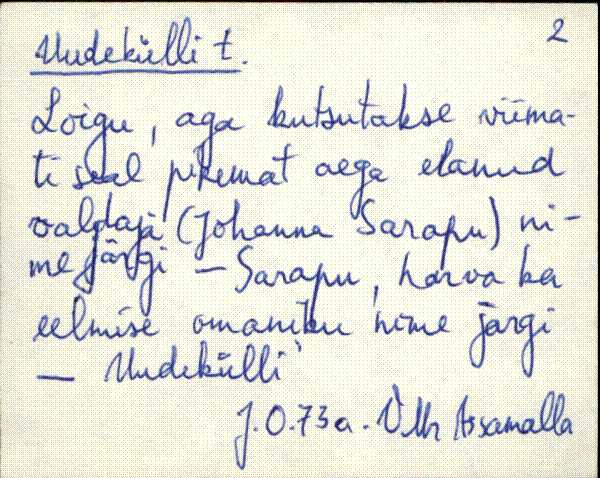 2
Uudekülli t.
Loigu, aga kutsutakse viima-
ti seal pikemat aega elanud
valdaja (Johanna Sarapu) ni-
me järgi – Sarapu, harva ka
eelmise omaniku nime järgi
— Uudekülli
J.O. 73 a. VMr Assamalla